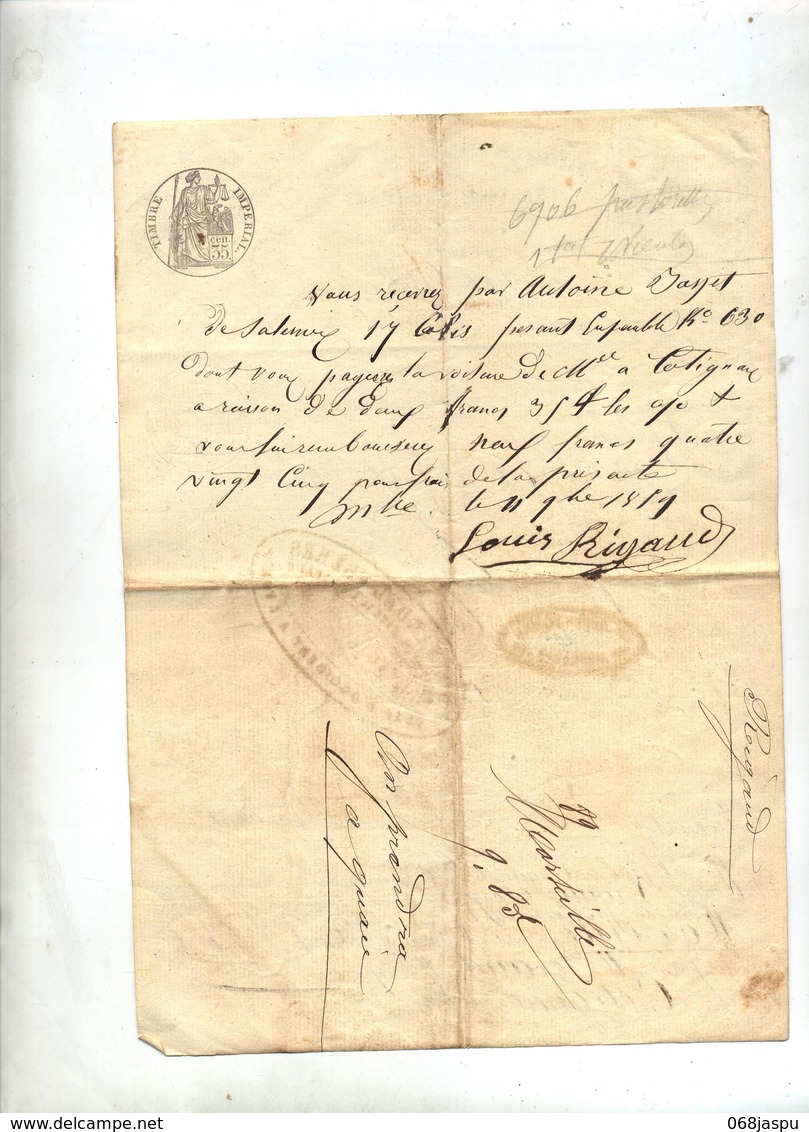 TIMBRE IMPERIAL.
cen.
35.
6906
Vous recevrez par Antoine Basset
de Salernes 17 Colis pesant Ensemble Ko 630
dont vous payerez la voiture de Mlle a Cotignac
a raison de deux francs 25 les %
rembourserez neuf francs quatre
vingt Cinq pour frais de la présente
Mlle le 11 9bre 1859
Louis Rigaud
Rigaud
89
Marseille
9,85
On prendra
a quai
068jaspu